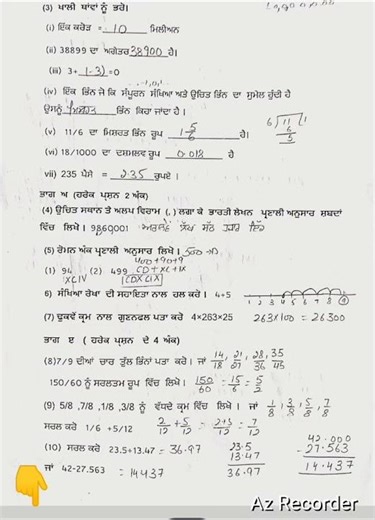 (3) ਖਾਲੀ ਥਾਂਵਾਂ ਨੂੰ ਭਰੋ।
(i) ਇੱਕ ਕਰੋੜ = 10 ਮਿਲੀਅਨ
(ii) 38899 ਦਾ ਅਗੇਤਰ 38900 ਹੈ।
(iii) 3+ (-3) =0
-1,0,1
(iv) ਇੱਕ ਭਿੰਨ ਜੋ ਕਿ ਸੰਪੂਰਨ ਸੰਖਿਆ ਅਤੇ ਉਚਿਤ ਭਿੰਨ ਦਾ ਸੁਮੇਲ ਹੁੰਦੀ ਹੈ
ਉਸਨੂੰ ਭਿੰਨ ਕਿਹਾ ਜਾਂਦਾ ਹੈ।
(v) 11/6 ਦਾ ਮਿਸ਼ਰਤ ਭਿੰਨ ਰੂਪ 1 5/6 ਹੈ।
(vi) 18/1000 ਦਾ ਦਸ਼ਮਲਵ ਰੂਪ 0.018 ਹੈ
vii) 235 ਪੈਸੇ = 2.35 ਰੁਪਏ।
ਭਾਗ ਅ (ਹਰੇਕ ਪ੍ਰਸ਼ਨ 2 ਅੰਕ)
(4) ਉਚਿਤ ਸਥਾਨ ਤੇ ਅਲਪ ਵਿਰਾਮ (,) ਲਗਾ ਕੇ ਭਾਰਤੀ ਲੇਖਨ ਪ੍ਰਣਾਲੀ ਅਨੁਸਾਰ ਸ਼ਬਦਾਂ
ਵਿੱਚ ਲਿਖੋ। 9860001
(5) ਰੋਮਨ ਅੰਕ ਪ੍ਰਣਾਲੀ ਅਨੁਸਾਰ ਲਿਖੋ।
400+90+9
(1) 94 (2) 499 CD+XC+IX
XCIV CDXCIX
6) ਸੰਖਿਆ ਰੇਖਾ ਦੀ ਸਹਾਇਤਾ ਨਾਲ ਹਲ ਕਰੋ। 4+5 1 2 3 4 5 6 7 8 9
(7) ਢੁਕਵੇਂ ਕ੍ਰਮ ਨਾਲ ਗੁਣਨਫਲ ਪਤਾ ਕਰੋ 4×263×25 263×100 = 26300
ਭਾਗ ੲ ( ਹਰੇਕ ਪ੍ਰਸ਼ਨ ਦੇ 4 ਅੰਕ)
(8)7/9 ਦੀਆਂ ਚਾਰ ਤੁੱਲ ਭਿੰਨਾਂ ਪਤਾ ਕਰੋ। ਜਾਂ 14/18, 21/27, 28/36, 35/45
150/60 ਨੂੰ ਸਰਲਤਮ ਰੂਪ ਵਿੱਚ ਲਿਖੋ। 150/60 = 15/6 = 5/2
(9) 5/8 ,7/8 ,1/8 ,3/8 ਨੂੰ ਵੱਧਦੇ ਕ੍ਰਮ ਵਿੱਚ ਲਿਖੋ। ਜਾਂ 1/8, 3/8, 5/8, 7/8
ਸਰਲ ਕਰੋ 1/6 +5/12 2/12 + 5/12 = 2+5/12 = 7/12
(10) ਸਰਲ ਕਰੋ 23.5+13.47 = 36.97
ਜਾਂ 42-27.563 = 14.437
23.5
13.47
36.97
42.000
-27.563
14.437
Az Recorder